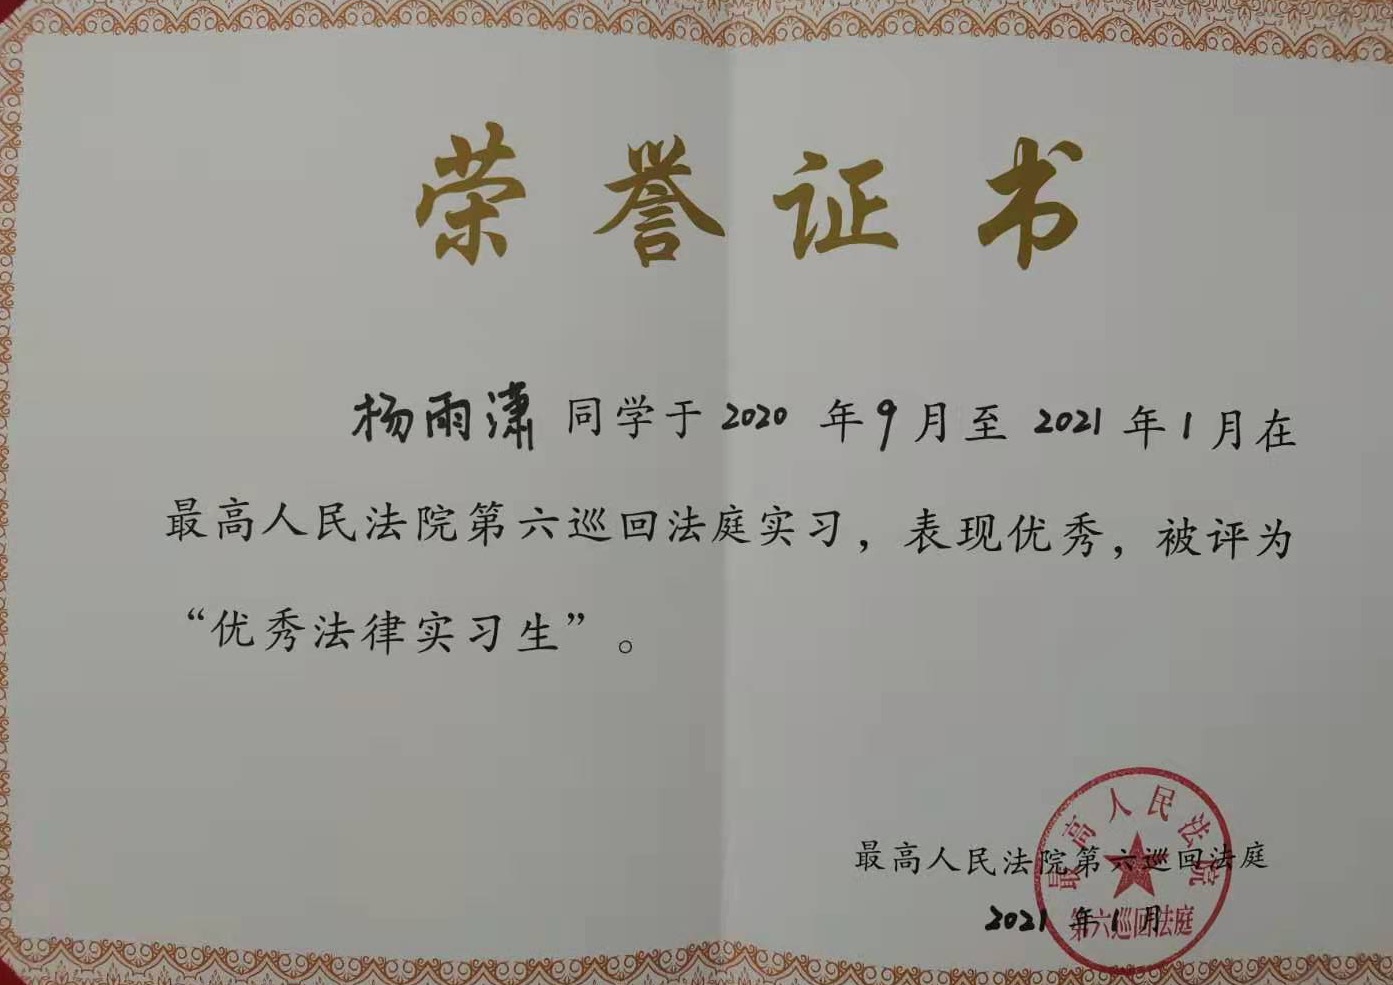 荣誉证书
杨雨潇 同学于 2020 年 9 月至 2021 年 1 月在
最高人民法院第六巡回法庭实习，表现优秀，被评为
“优秀法律实习生”。
最高人民法院第六巡回法庭
2021 年 1 月
最高人民法院
第六巡回法庭